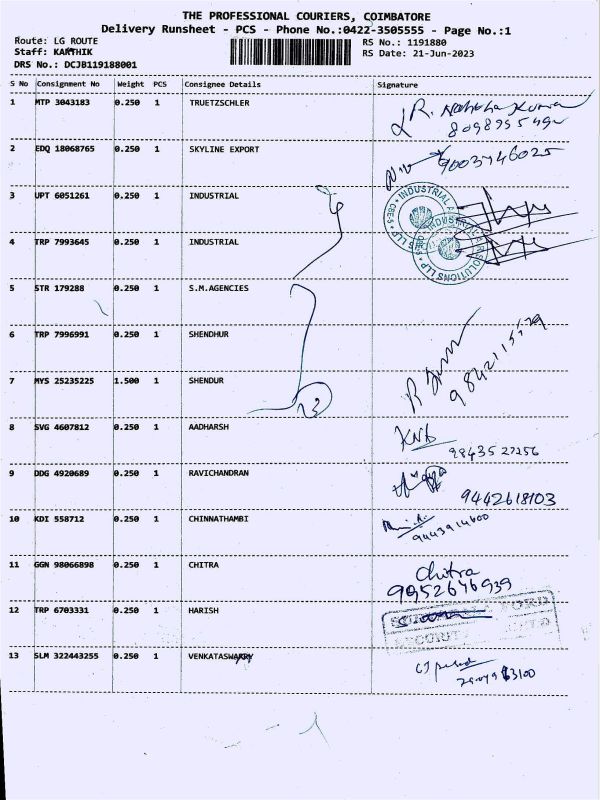 THE PROFESSIONAL COURIERS, COIMBATORE
Delivery Runsheet - PCS - Phone No.:0422-3505555 - Page No.:1
Route: LG ROUTE
Staff: KARTHIK
DRS No.: DCJB119188001
RS No.: 1191880
RS Date: 21-Jun-2023
S No Consignment No Weight PCS Consignee Details Signature
1 MTP 3043183 0.250 1 TRUETZSCHLER
2 EDQ 18068765 0.250 1 SKYLINE EXPORT 9003746025
3 UPT 6051261 0.250 1 INDUSTRIAL
4 TRP 7993645 0.250 1 INDUSTRIAL
5 STR 179288 0.250 1 S.M.AGENCIES
6 TRP 7996991 0.250 1 SHENDHUR
7 MYS 25235225 1.500 1 SHENDUR
8 SVG 4607812 0.250 1 AADHARSH
9 DDG 4920689 0.250 1 RAVICHANDRAN 9442618103
10 KDI 558712 0.250 1 CHINNATHAMBI 9443914600
11 GGN 98066898 0.250 1 CHITRA Chitra
9952676939
12 TRP 6703331 0.250 1 HARISH
13 SLM 322443255 0.250 1